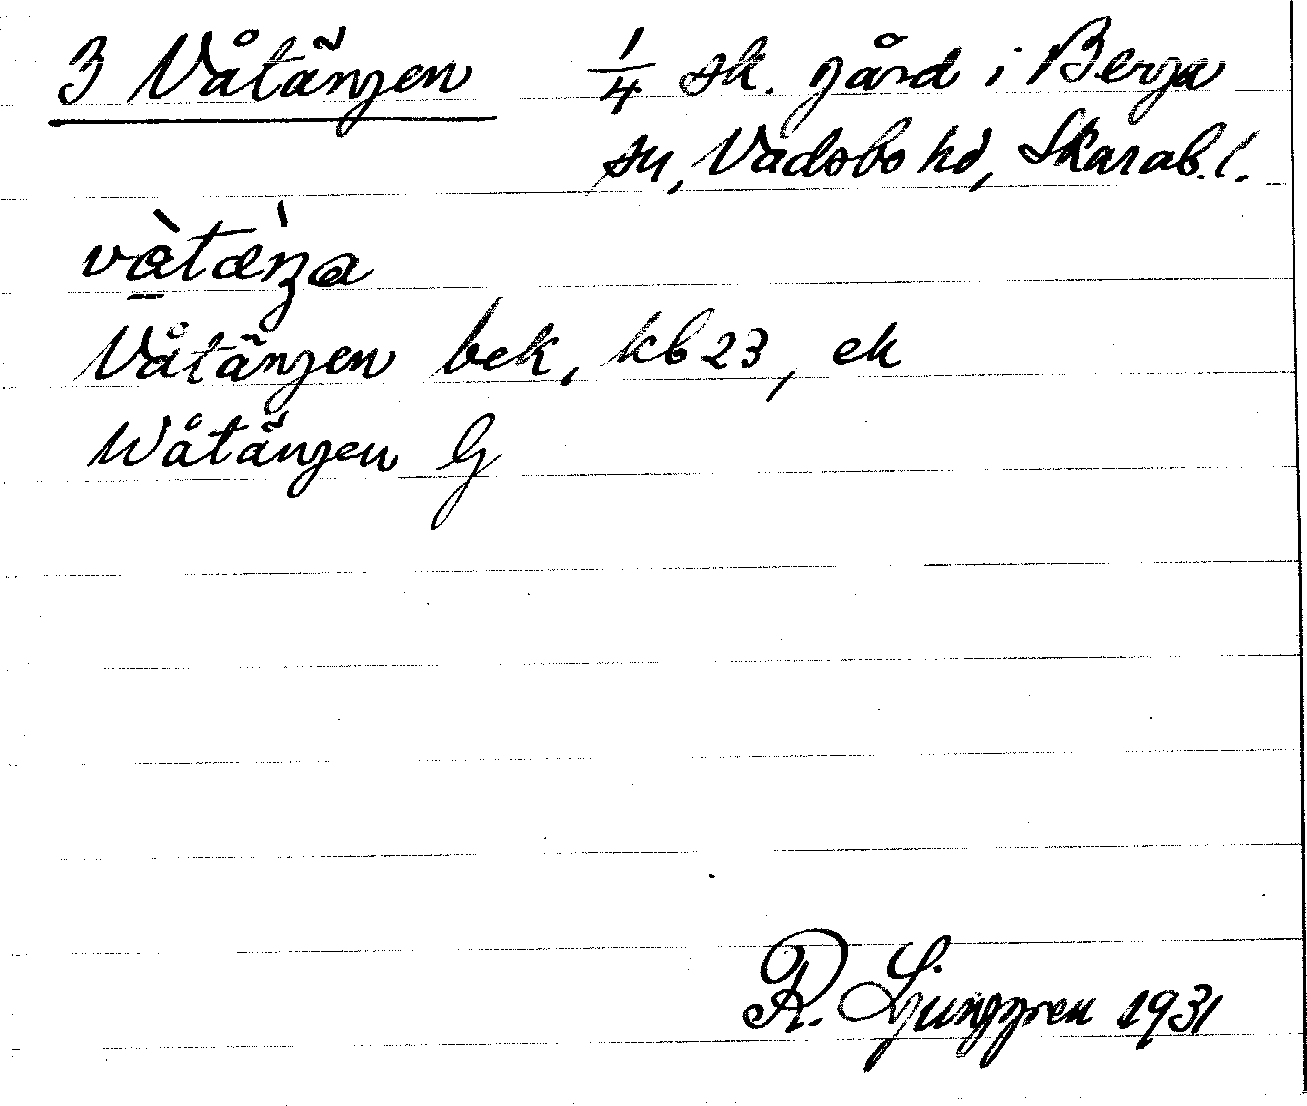 3 Våtängen 1/4 sk. gård i Berga
sn, Vadsbo hd, Skarab. l.
vàtæ̀ŋa
Våtängen bek, kb 23, ek
Wåtängen G
R. Ljunggren 1931